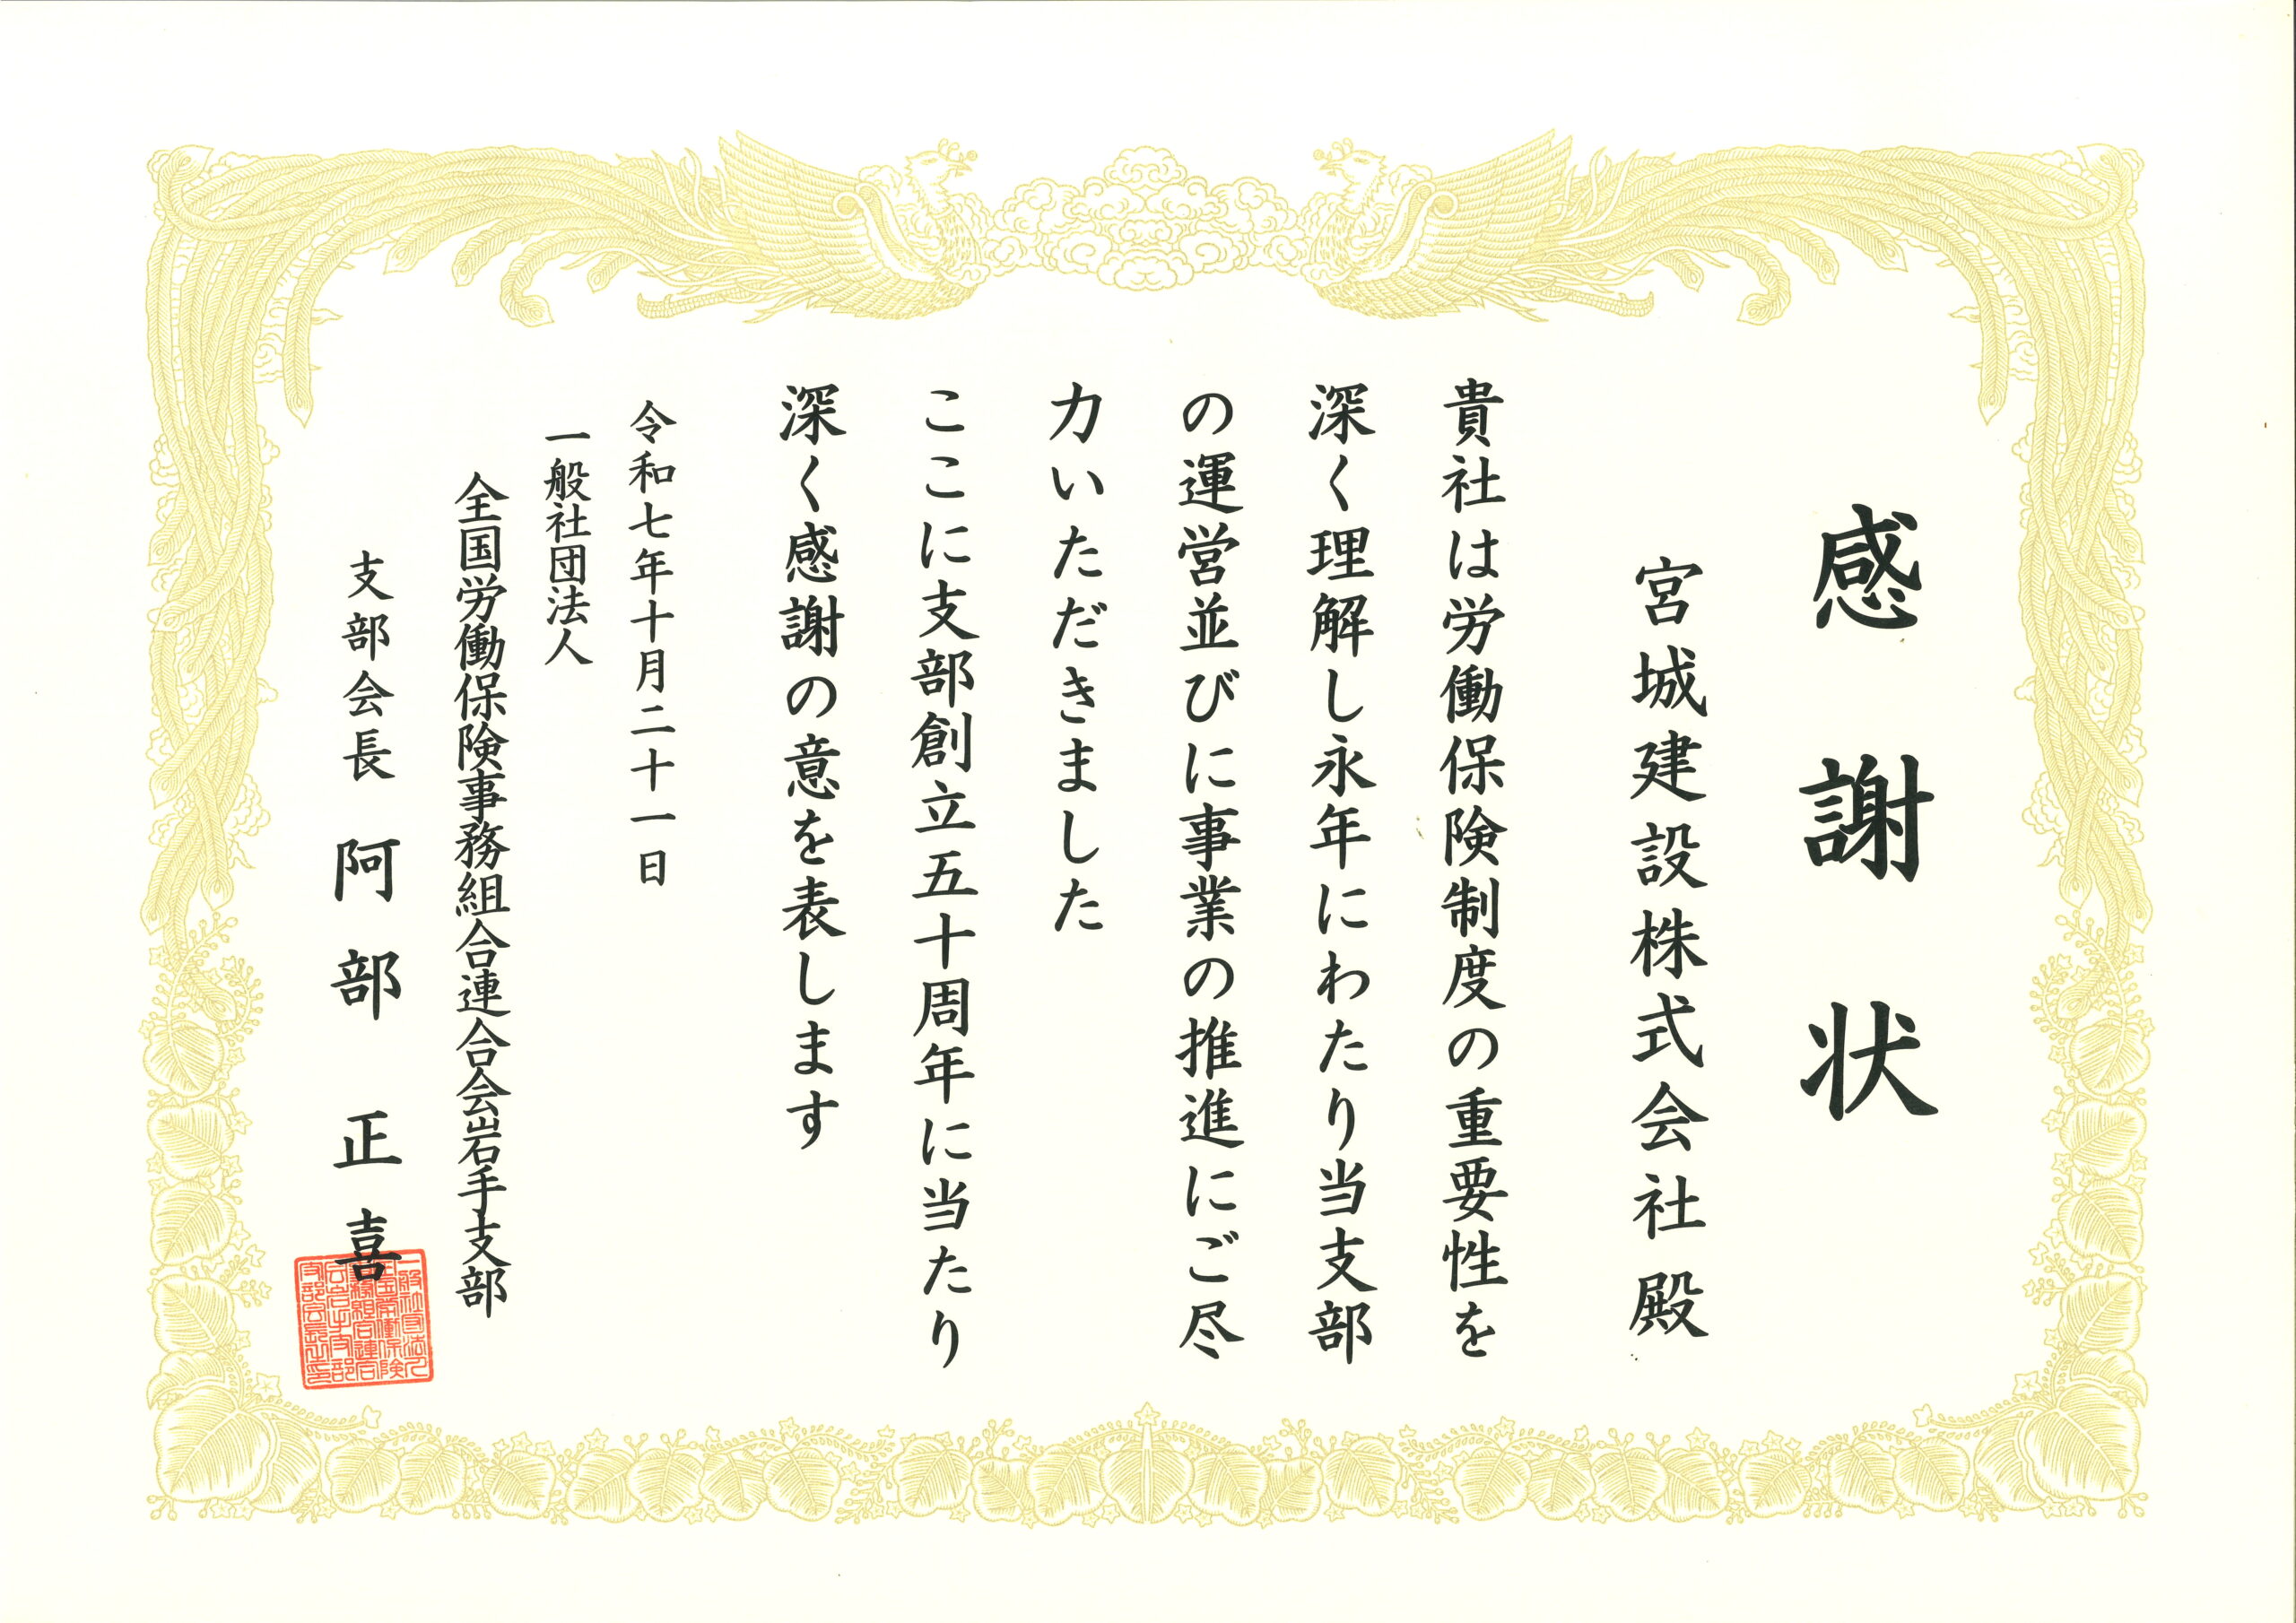 感謝状
宮城建設株式会社殿
貴社は労働保険制度の重要性を
深く理解し永年にわたり当支部
の運営並びに事業の推進にご尽
力いただきました
ここに支部創立五十周年に当たり
深く感謝の意を表します
令和七年十月二十一日
一般社団法人
全国労働保険事務組合連合会岩手支部
支部会長 阿部 正喜
一般社団法人
全国労働保険
事務組合連合
会岩手支部
支部会長之印